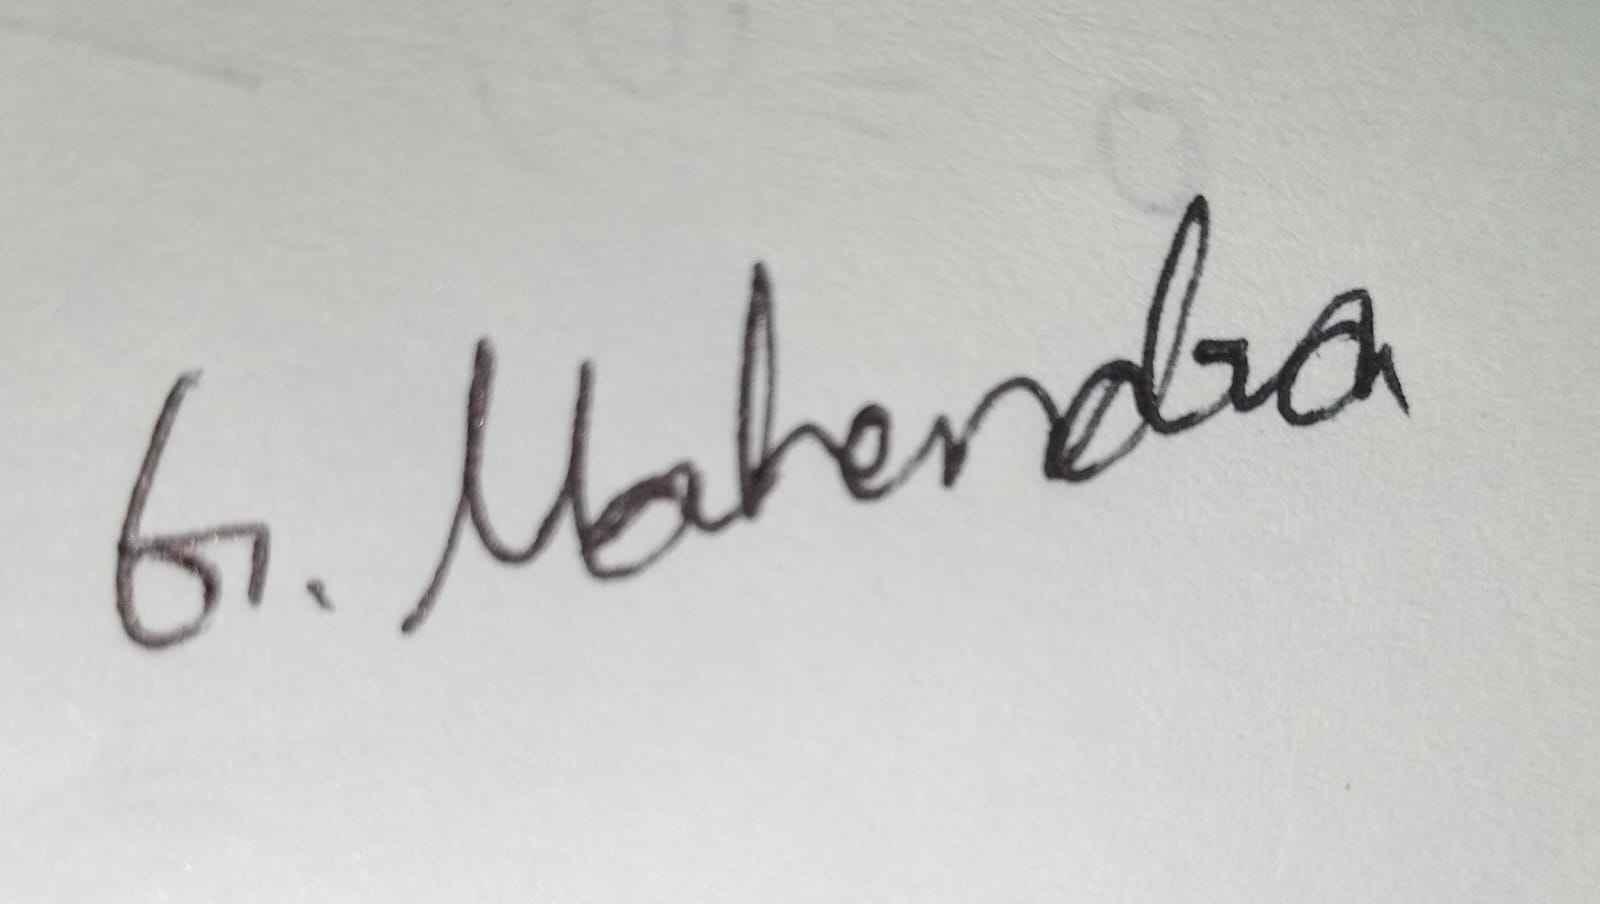 G. Mahendra